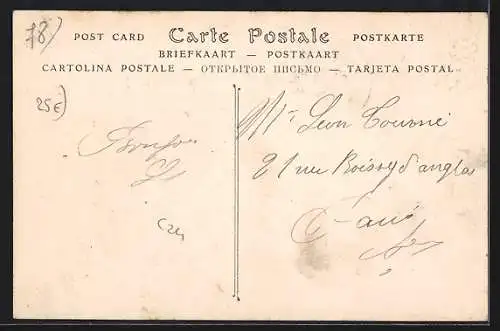 78)
POST CARD Carte Postale POSTKARTE
BRIEFKAART — POSTKAART
CARTOLINA POSTALE — ОТКРЫТОЕ ПИСЬМО — TARJETA POSTAL
25€)
Mr Léon
21 rue Boissy d'anglas
Paris